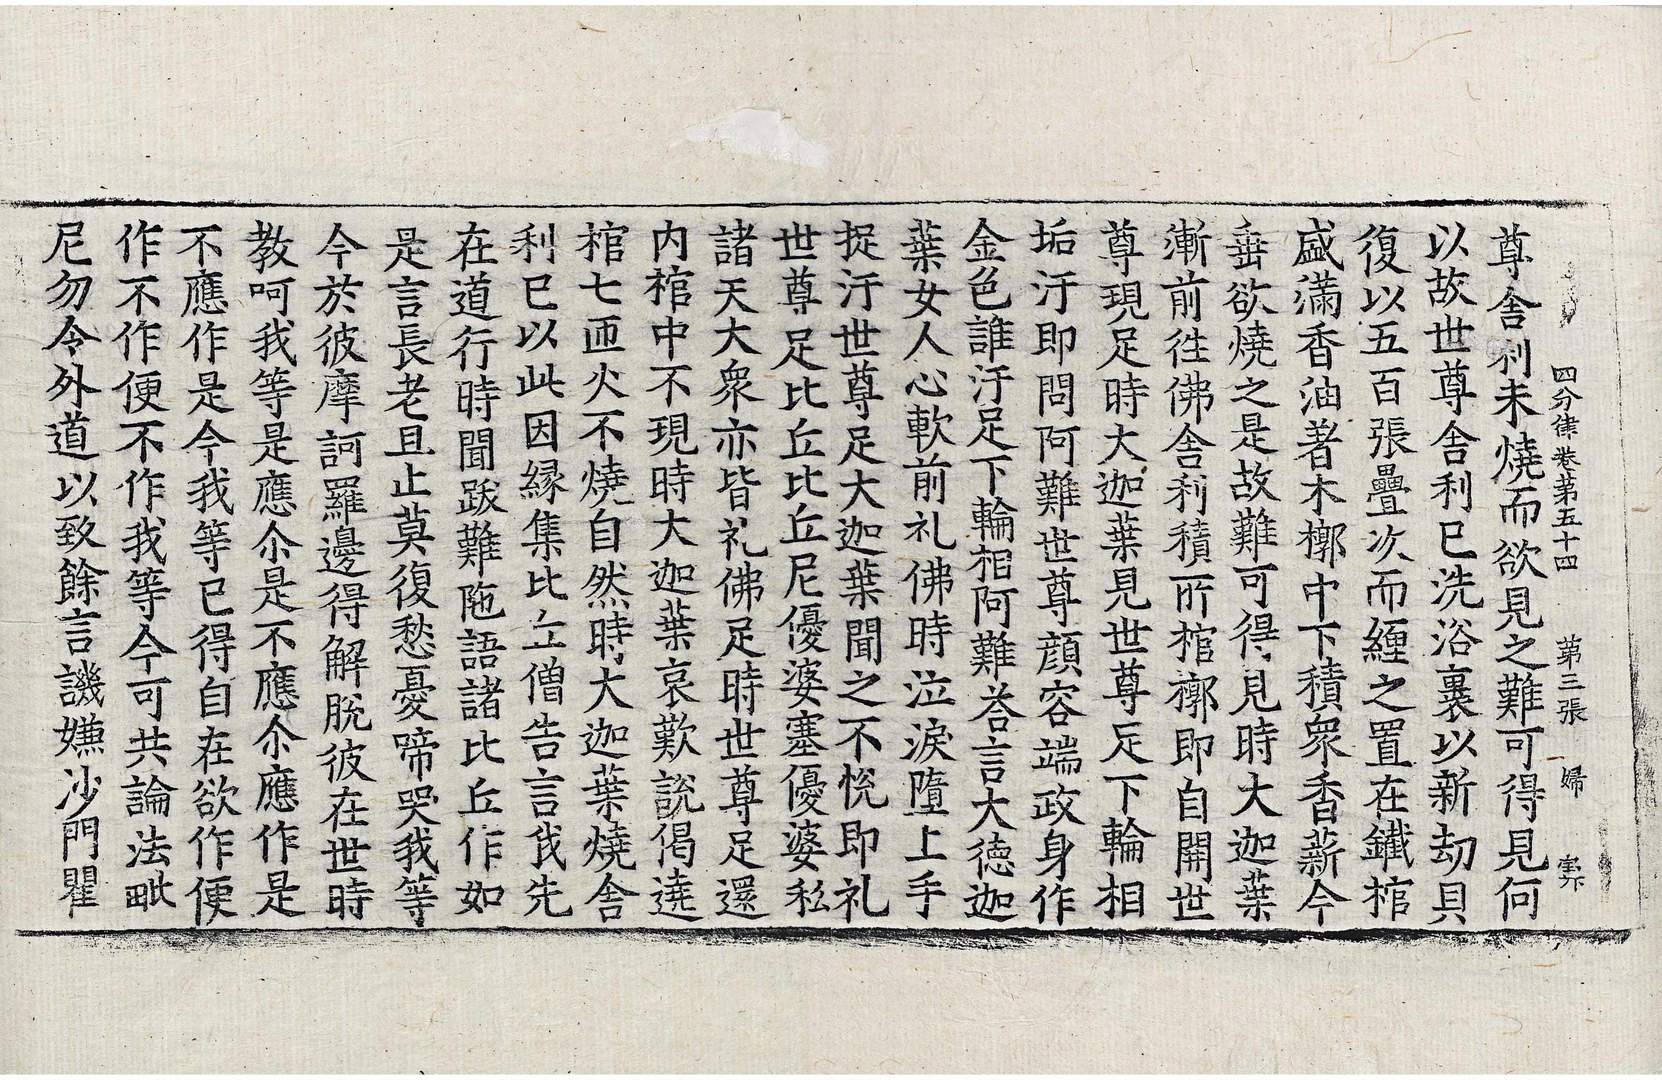 四分律卷第五十四 第三張 婦
尊舍利未燒而欲見之難可得見何
以故世尊舍利已洗浴裹以新劫貝
復以五百張疊次而纏之置在鐵棺
盛滿香油著木槨中下積衆香薪今
垂欲燒之是故難可得見時大迦葉
漸前徃佛舍利積所棺槨即自開世
尊現足時大迦葉見世尊足下輪相
垢汙即問阿難世尊顔容端政身作
金色誰汙足下輪相阿難荅言大德迦
葉女人心軟前礼佛時泣淚墮上手
捉汙世尊足大迦葉聞之不恱即礼
世尊足比丘比丘尼優婆塞優婆私
諸天大衆亦皆礼佛足時世尊足還
内棺中不現時大迦葉哀歎說偈遶
棺七迊火不燒自然時大迦葉燒舍
利已以此因縁集比丘僧告言我先
在道行時聞跋難陁語諸比丘作如
是言長老且止莫復愁憂啼哭我等
今於彼摩訶羅邊得解脫彼在世時
教呵我等是應尒是不應尒應作是
不應作是今我等已得自在欲作便
作不作便不作我等今可共論法毗
尼勿令外道以致餘言譏嫌沙門瞿